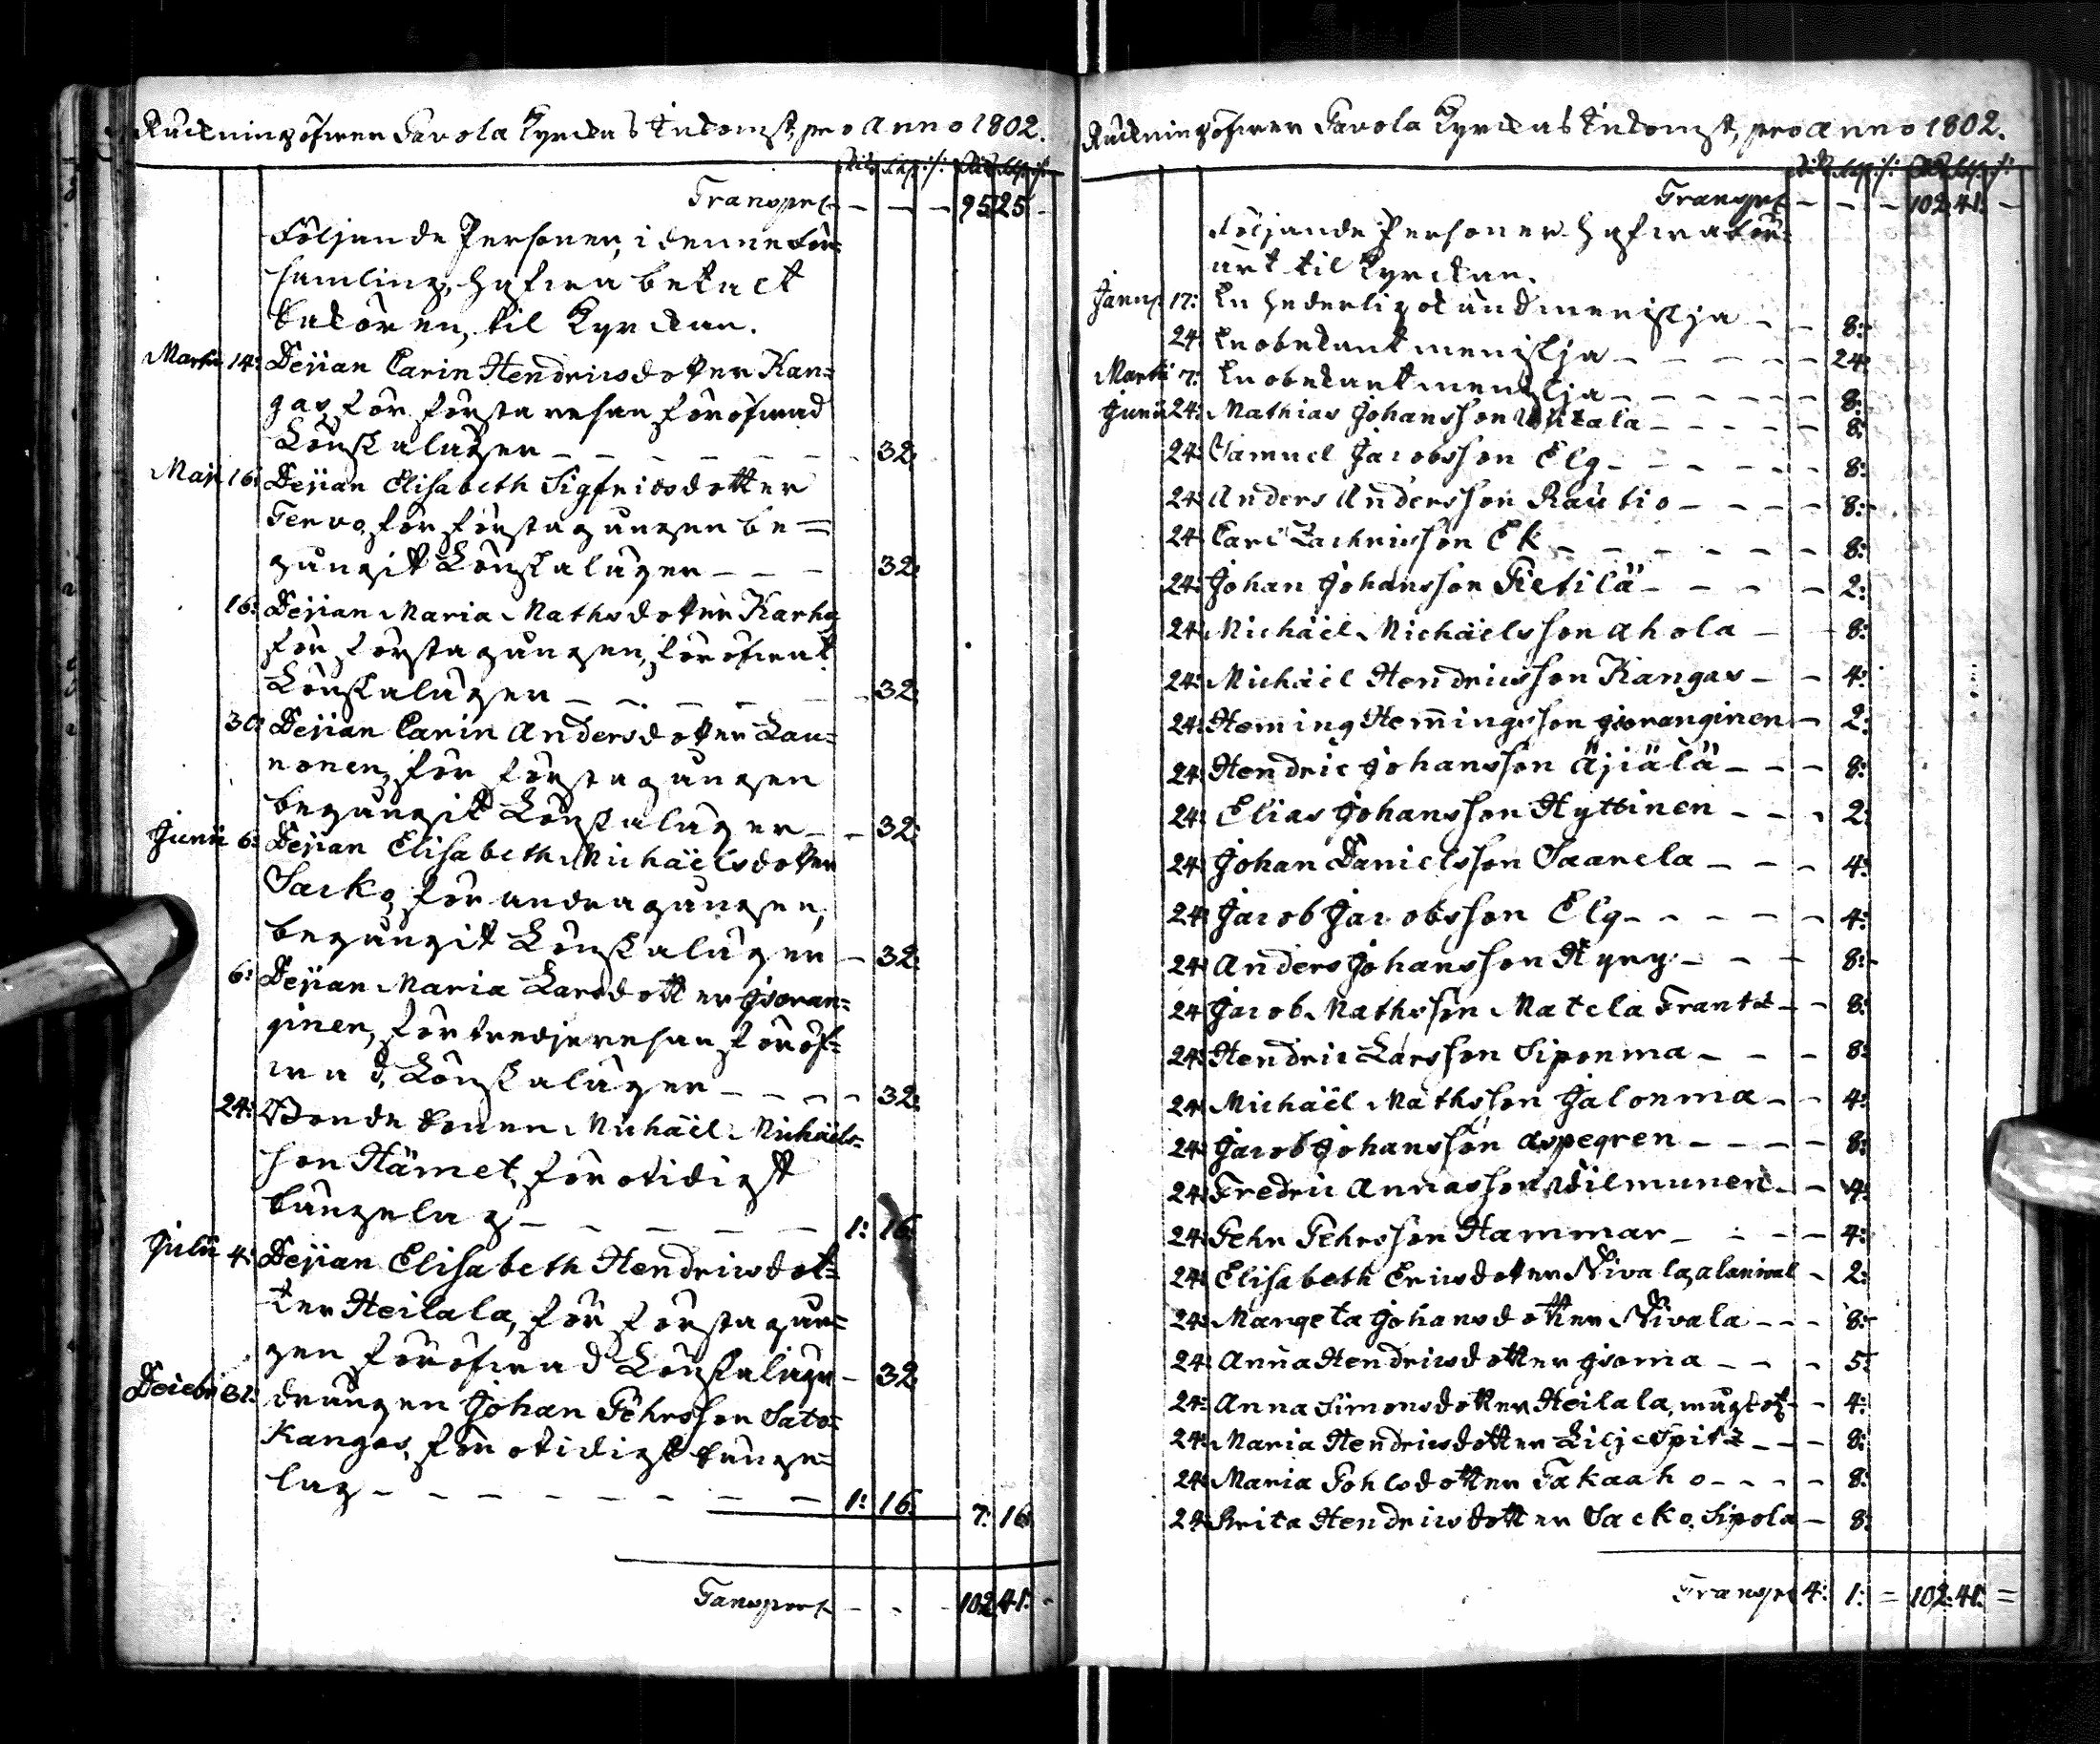 Räckning öfwer Pavola Kyrckas Inkomst, pro anno 1802.
Rd. skp: /:  Rd. skp: /:
Transport – – – 95 25: –
Följande Personer, i denne För=
samling, hafwa betalt
böter, til Kyrckan.
Martii 14: Pejian Carin Hendricsdotter Kan=
gas, för första resan föröfwad
Lönskaläger – – – 32:
Maji 16: Pejian Elisabeth Sigfridsdotter
Tervo, för första gången be=
gångit Lönskaläger – – – 32:
16: Pejian Maria Mathsdotter Karhu
för första gången, föröfwat
Lönskaläger – – – 32:
30: Pejian Carin Andersdotter Lau=
nonen, för första gången
begångit Lönskaläger – – 32:
Junii 6: Pejian Elisabeth Michäelsdotter
Sacko, för andra gången,
begångit Lönskaläger – 32:
6: Pejian Maria Larsdotter
ginen, för tredje resan föröf=
wad, Lönskaläger – – – 32:
24: Bonde sonen Michäel Michäels=
son Hämet, för otidigt
sängelag – – – 1: 16
Julii 4: Pejian Elisabeth Hendricsdot=
ter Heilala, för första gån=
gen föröfwad Lönskaläger – 32
Decebr 31: drängen Johan Pehrsson Sato=
Kangas, för otidigt sänge=
lag – – – 1: 16. 7: 16
Tansport – – – 102 41: –
Räckning öfwer Pavola Kyrckas Inkomst, pro anno 1802.
Rd. skp: /:  Rd. skp: /:
Transport – – – 102 41: –
Följande Personer hafwa för=
ärt til Kyrckan.
Januar 17: En hederlig menniskja – – 8:
24: En obekant menniskja – – – 24:
Martii 7: En obekant menniskja – – – 8:
Junii 24: Mathias Johansson – – – 8:
24: Samuel Jacobsson Elg – – – 8:
24: Anders Andersson Rautio – – – 8:
24: Carl Zachrisson Ek – – – 8:
24: Johan Johansson Pietilä – – – 2:
24: Michäel Michäelsson Ahola – – 8:
24: Michäel Hendricsson Kangas – – 4:
24: Heming Hemingsson – 2:
24: Hendric Johansson Äjiälä – – – 8:
24: Elias Johansson Hyttinen – – – 2:
24: Johan Danielsson Saarela – – – 4:
24: Jacob Jacobsson Elg – – – 4:
24: Anders Johansson Hyry – – – 8:
24: Jacob Mathsson Matela – – 8:
24: Hendric Larsson Siponma – – – 8:
24: Michäel Mathsson Jalonma – – 4:
24: Jacob Johansson Aspegren – – – 8:
24: Fredric Wilmunen – – 4:
24: Pehr Pehrsson Hammar – – – 4:
24: Elisabeth Ericsdotter Nivala, – 2:
24: Margeta Johansdotter Nivala – – – 8:
24: Anna Hendricsdotter – – – 5:
24: Anna Simonsdotter Heilala, – – 4:
24: Maria Hendricsdotter Liljespitz – – – 8:
24: Maria Pohlsdotter Takaaho – – – 8:
24: Brita Hendricsdotter Sacko, Sipola – 8:
Transport 4: 1: = 102: 41: =